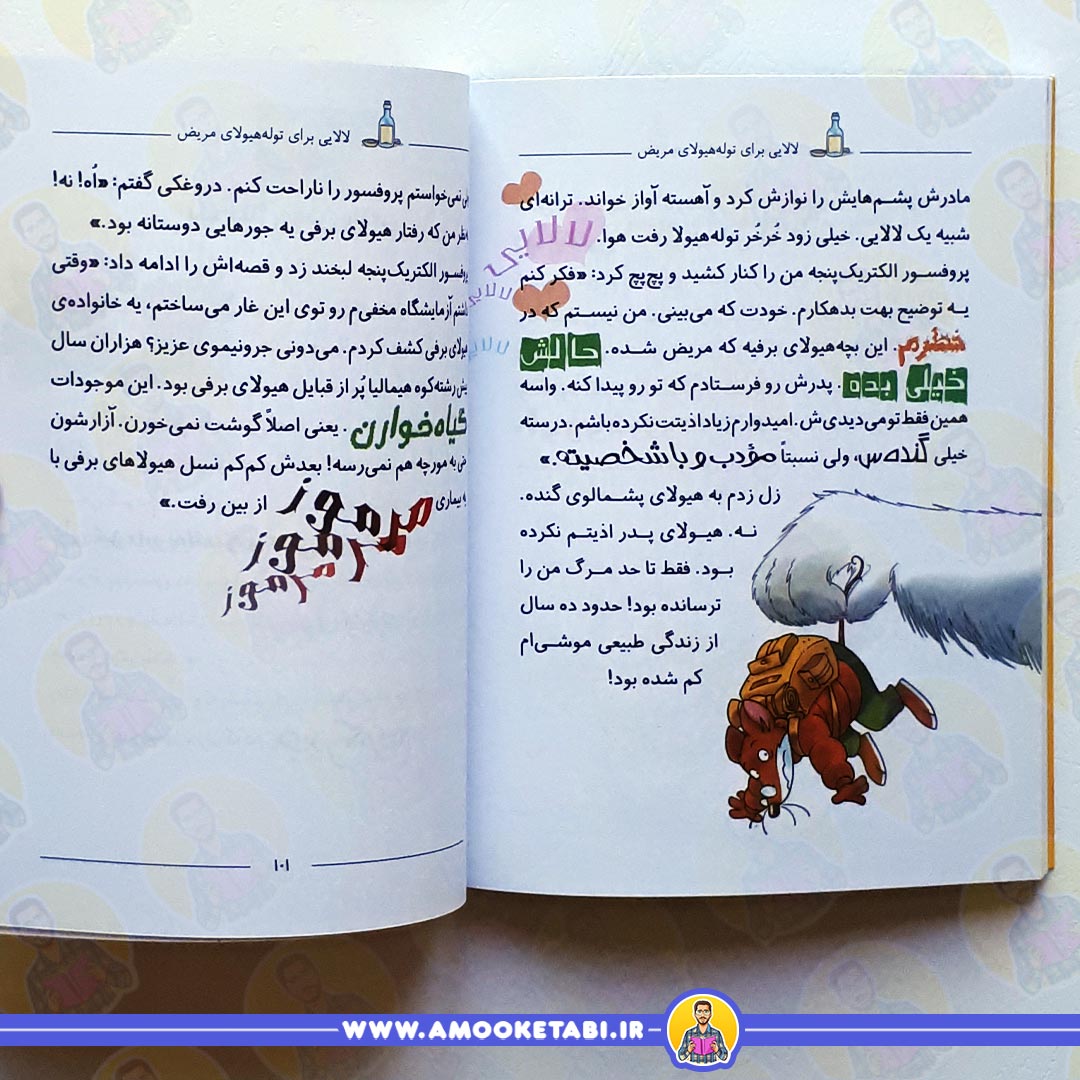 لالایی برای توله‌هیولای مریض
مادرش پشم‌هایش را نوازش کرد و آهسته آواز خواند. ترانه‌ای
شبیه یک لالایی. خیلی زود خُرخُر توله‌هیولا رفت هوا.
لالایی
لالایی
لالایی
پروفسور الکتریک‌پنجه من را کنار کشید و پچ‌پچ کرد: «فکر کنم
یه توضیح بهت بدهکارم. خودت که می‌بینی. من نیستم که در
خطرم. این بچه‌هیولای برفیه که مریض شده. حالش
خیلی بده. پدرش رو فرستادم که تو رو پیدا کنه. واسه
همین فقط تو می‌دیدی‌ش. امیدوارم زیاد اذیتت نکرده باشم. درسته
خیلی گنده‌س، ولی نسبتاً مؤدب و باشخصیته.»
زل زدم به هیولای پشمالوی گنده.
نه. هیولای پدر اذیتم نکرده
بود. فقط تا حد مرگ من را
ترسانده بود! حدود ده سال
از زندگی طبیعی موشی‌ام
کم شده بود!
لالایی برای توله‌هیولای مریض
نمی‌خواستم پروفسور را ناراحت کنم. دروغکی گفتم: «اُه! نه!
من که رفتار هیولای برفی یه جورهایی دوستانه بود.»
الکتریک‌پنجه لبخند زد و قصه‌اش را ادامه داد: «وقتی
آزمایشگاه مخفی‌م رو توی این غار می‌ساختم، یه خانواده‌ی
هیولای برفی کشف کردم. می‌دونی جرونیموی عزیز؟ هزاران سال
پیش رشته‌کوه هیمالیا پُر از قبایل هیولای برفی بود. این موجودات
گیاه‌خوارن. یعنی اصلاً گوشت نمی‌خورن. آزارشون
به مورچه هم نمی‌رسه! بعدش کم‌کم نسل هیولاهای برفی با
یه بیماری مرموز از بین رفت.»
مرموز
مرموز
۱۰۱
WWW.AMOOKETABI.IR